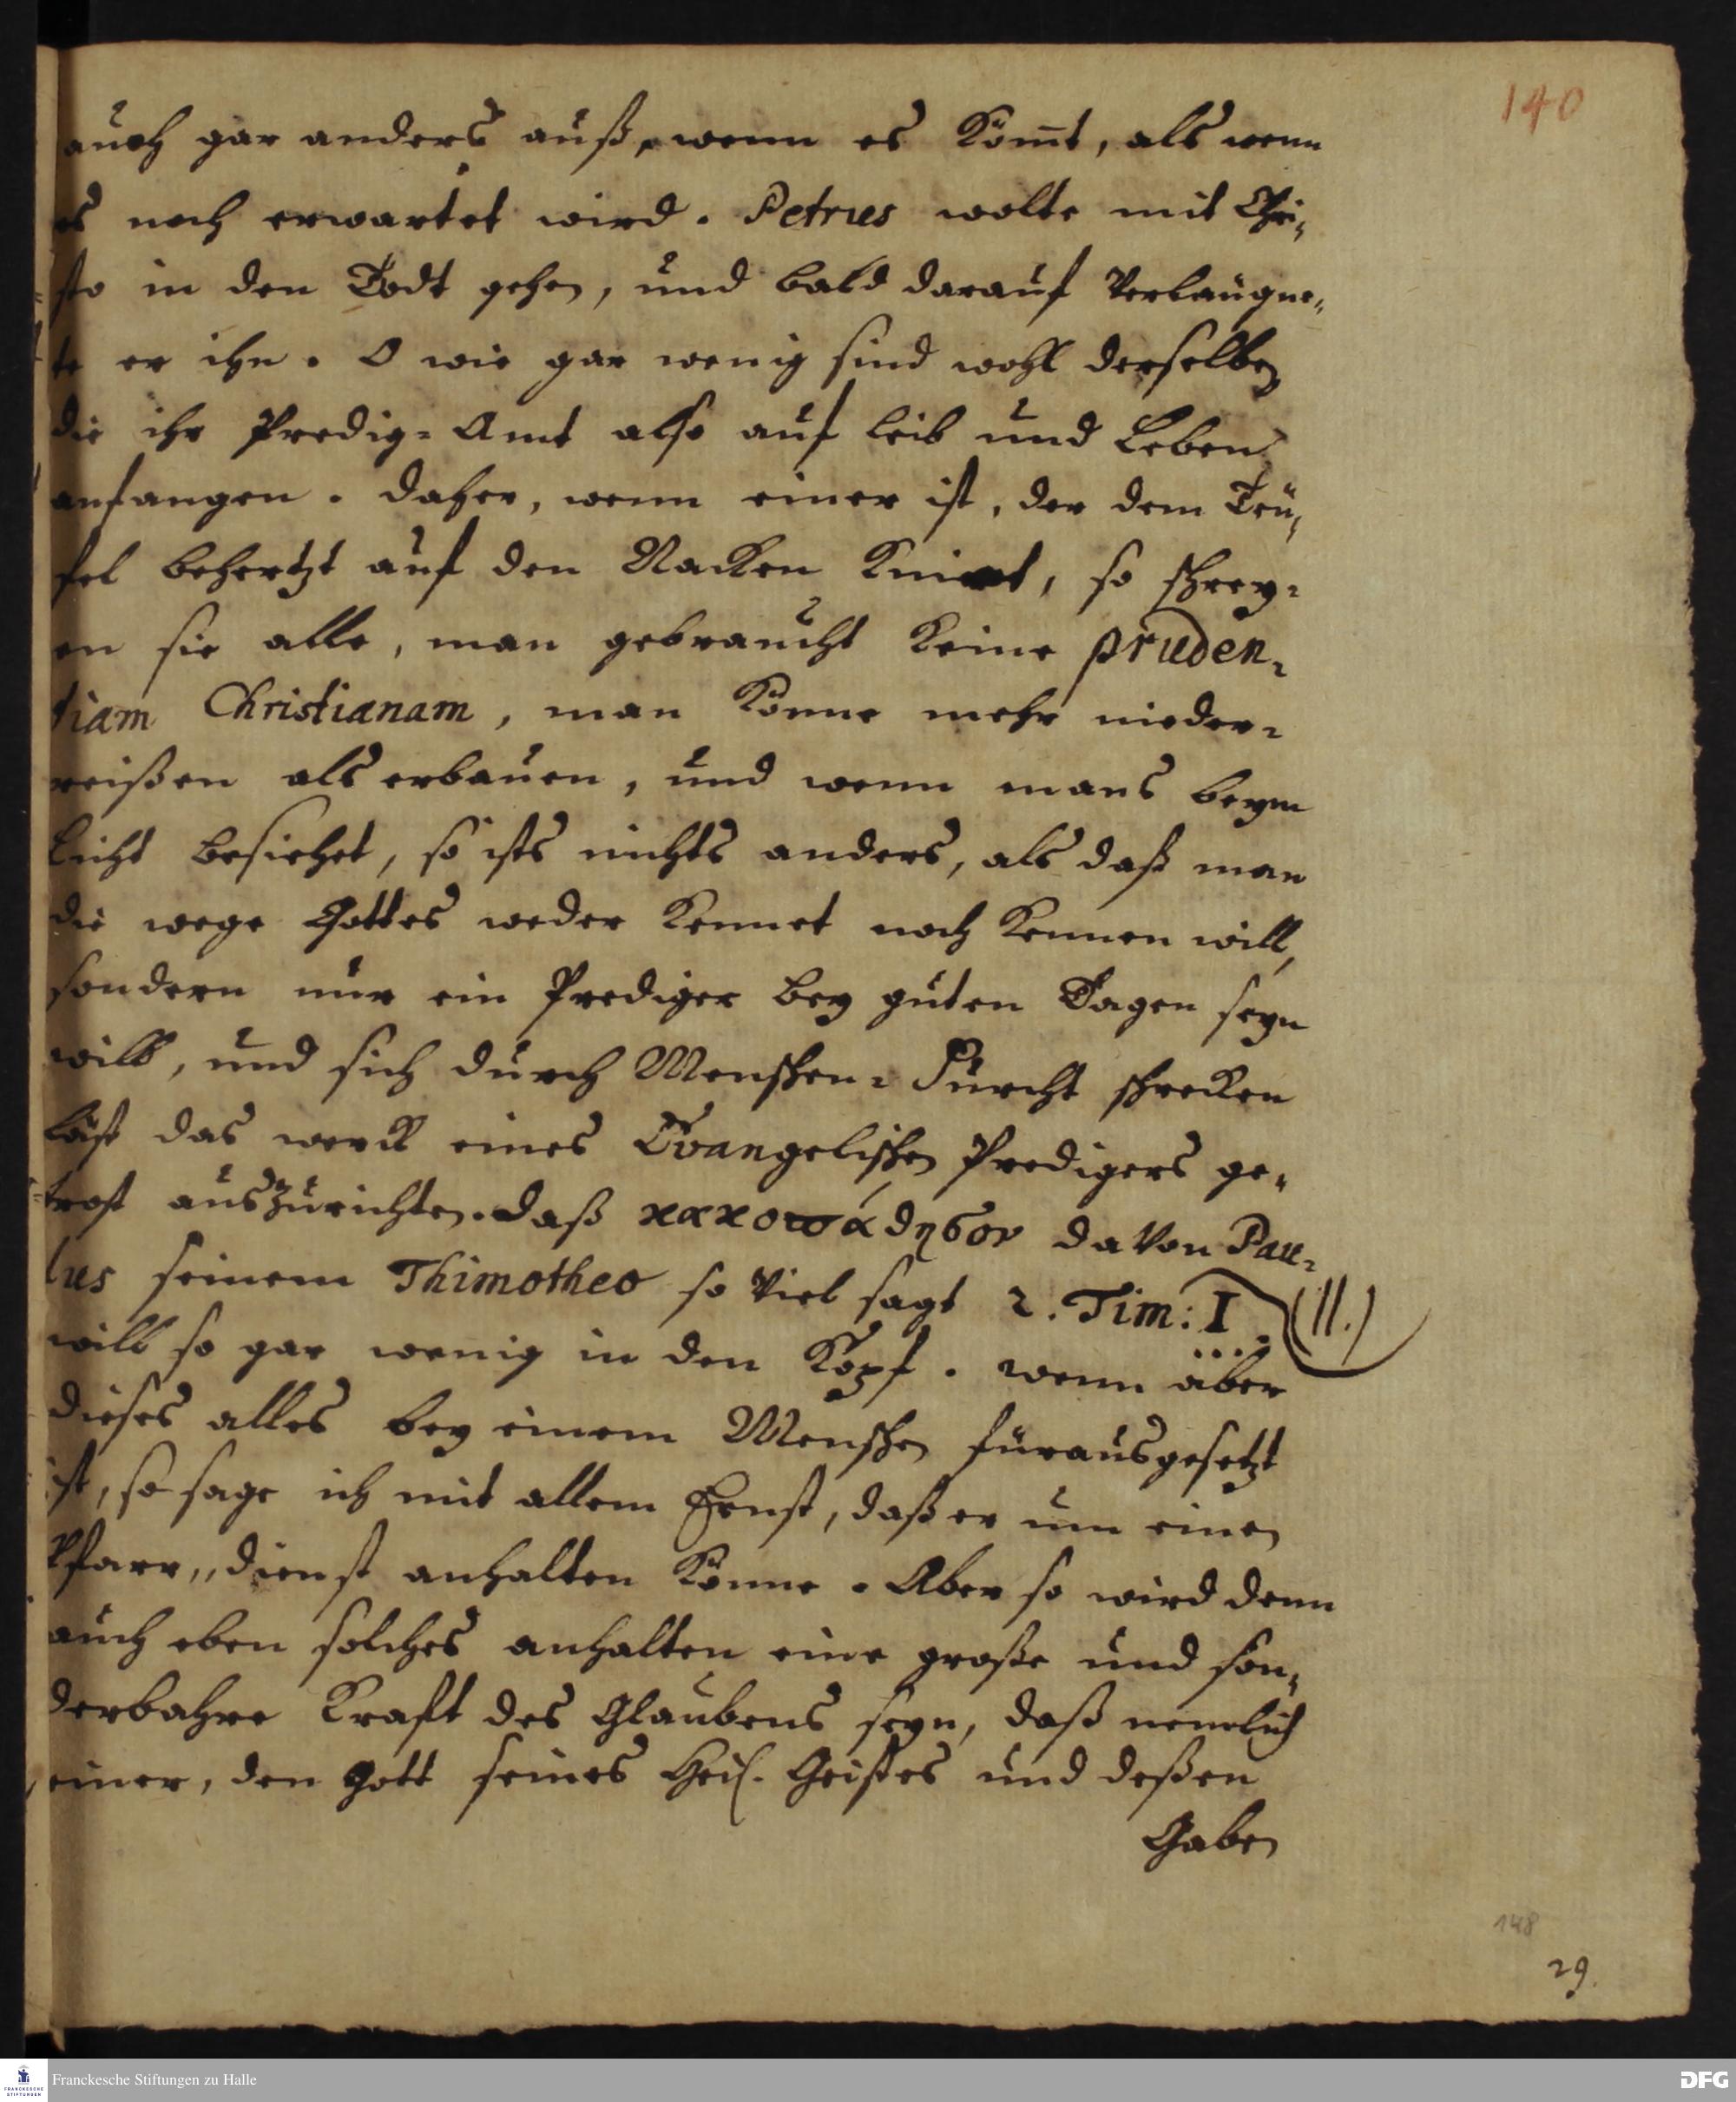 140
auch gar anders auß, wenn es kom̃t, als wenn
es noch erwartet wird. Petrus wolte mit Chri-
sto in den Todt gehen, und bald darauf verläugne-
te er ihn. O wie gar wenig sind wohl derselben
die ihr Predig-Amt also auf leib und Leben
anfangen. daher, wenn einer ist, der dem Teü-
fel behertzt auf den Nacken kniet, so schrey-
en sie alle, man gebraucht keine pruden-
tiam Christianam, man könne mehr nieder-
reißen als erbauen, und wenn mans beym
licht besiehet, so ists nichts anders, als daß man
die wege Gottes weder kennet noch kennen will,
sondern nur ein Prediger bey guten Tagen seyn
will, und sich durch Menschen-Furcht schrecken
läst das werck eines Evangelischen Predigers ge-
trost auszurichten. daß κακοπάθησον davon Pau-
lus seinem Thimotheo so viel sagt 2. Tim: I (II.)
will so gar wenig in den Kopf. wenn aber
dieses alles bey einem Menschen fürausgesetzt
ist, so sage ich mit allem Ernst, daß er um einen
Pfarr-dienst anhalten könne. Aber so wird denn
auch eben solches anhalten eine große und son-
derbahre Krafft des Glaubens seyn, daß nemlich
einer, den Gott seines Heil. Geistes und deßen
Gaben
148
29.
Franckesche Stiftungen zu Halle
DFG